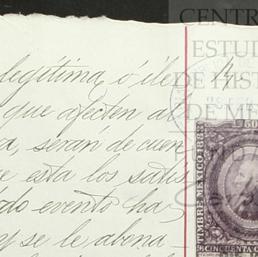 legítima ó ile
que afecten al
a, serán de cuen
e está los satis
do evento ha-
y se le abona-
CENTR
ESTUD
DE HIST
DE ME
TIMBRE MEXICO 188
50
CINCUENTA C